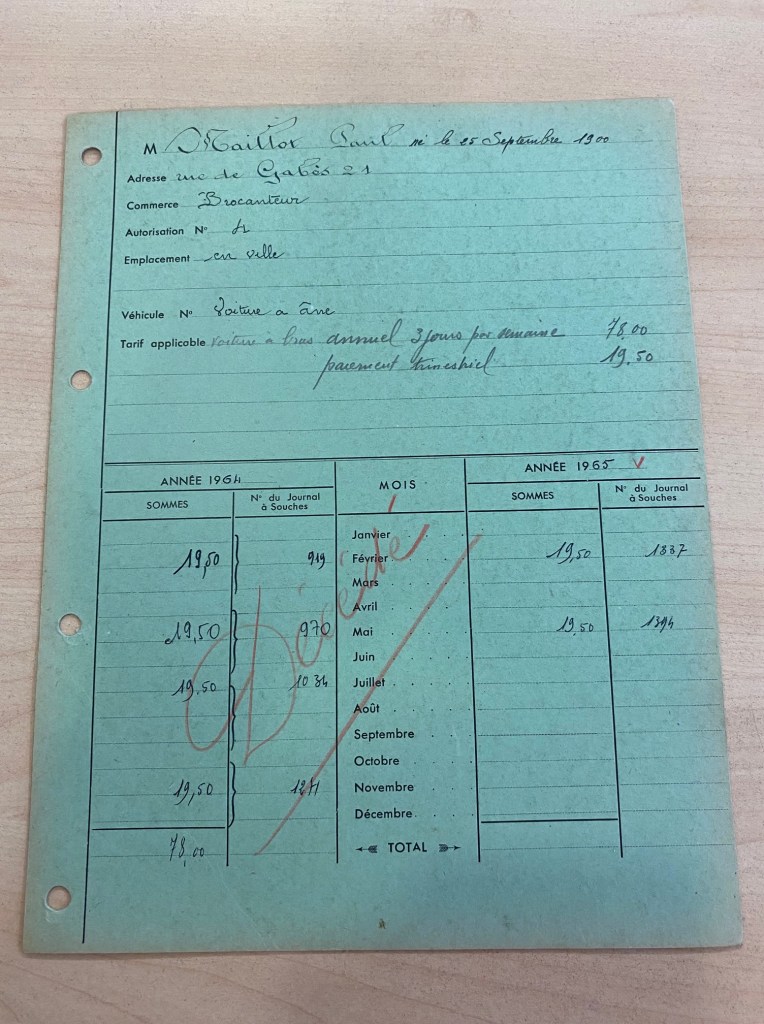 M Maillot Paul né le 25 Septembre 1900
Adresse rue de Gabès 21
Commerce Brocanteur
Autorisation N° 4
Emplacement en ville
Véhicule N° Voiture a âne
Tarif applicable voiture a bras annuel 3 jours par semaine 78,00
paiement trimestriel 19.50
ANNÉE 1964 MOIS ANNÉE 1965 V
SOMMES N° du Journal à Souches SOMMES N° du Journal à Souches
Janvier
19,50 919 Février 19,50 1337
Mars
Avril
19,50 970 Mai 19,50 1394
Juin
19.50 1034 Juillet
Août
Septembre
Octobre
19,50 Novembre
Décembre
78,00 TOTAL
Décédé